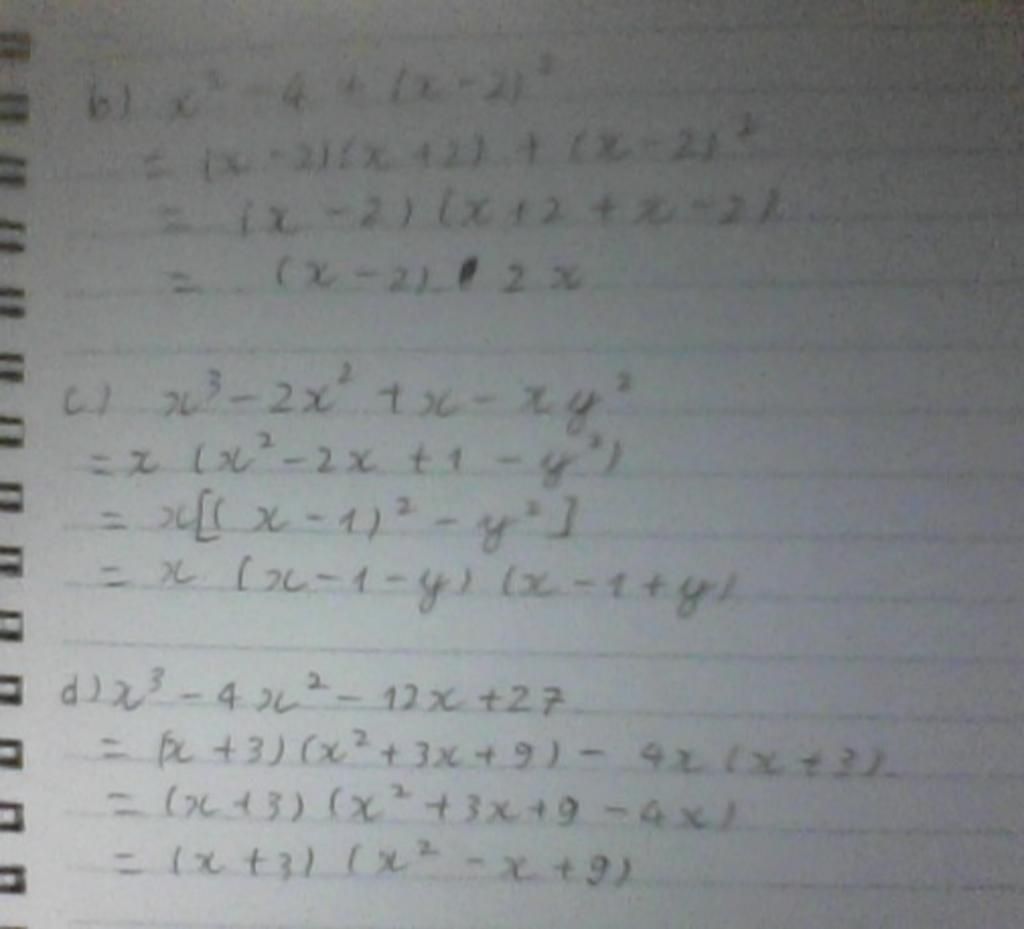 b) x² - 4 + (x-2)²
= (x-2)(x+2) + (x-2)²
= (x-2)(x+2+x-2)
= (x-2) · 2x
c) x³ - 2x² + x - xy²
= x (x² - 2x + 1 - y²)
= x[(x-1)² - y²]
= x (x-1-y) (x-1+y)
d) x³ - 4x² - 12x + 27
= (x+3)(x²+3x+9) - 4x(x+3)
= (x+3)(x²+3x+9-4x)
= (x+3) (x² - x + 9)